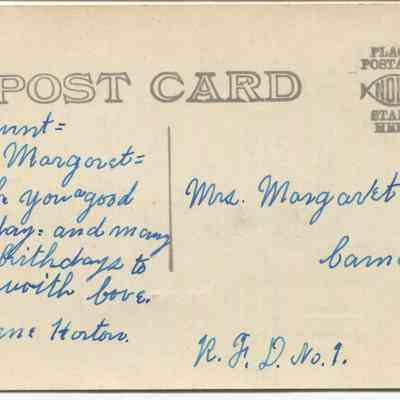 POST CARD
PLAC
POSTA
NOKO
STA
HER
unt=
Margaret=
you a good
day: and many
birthdays to
with love.
ene Horton.
Mrs. Margaret
Came
R. F. D. No. 1.